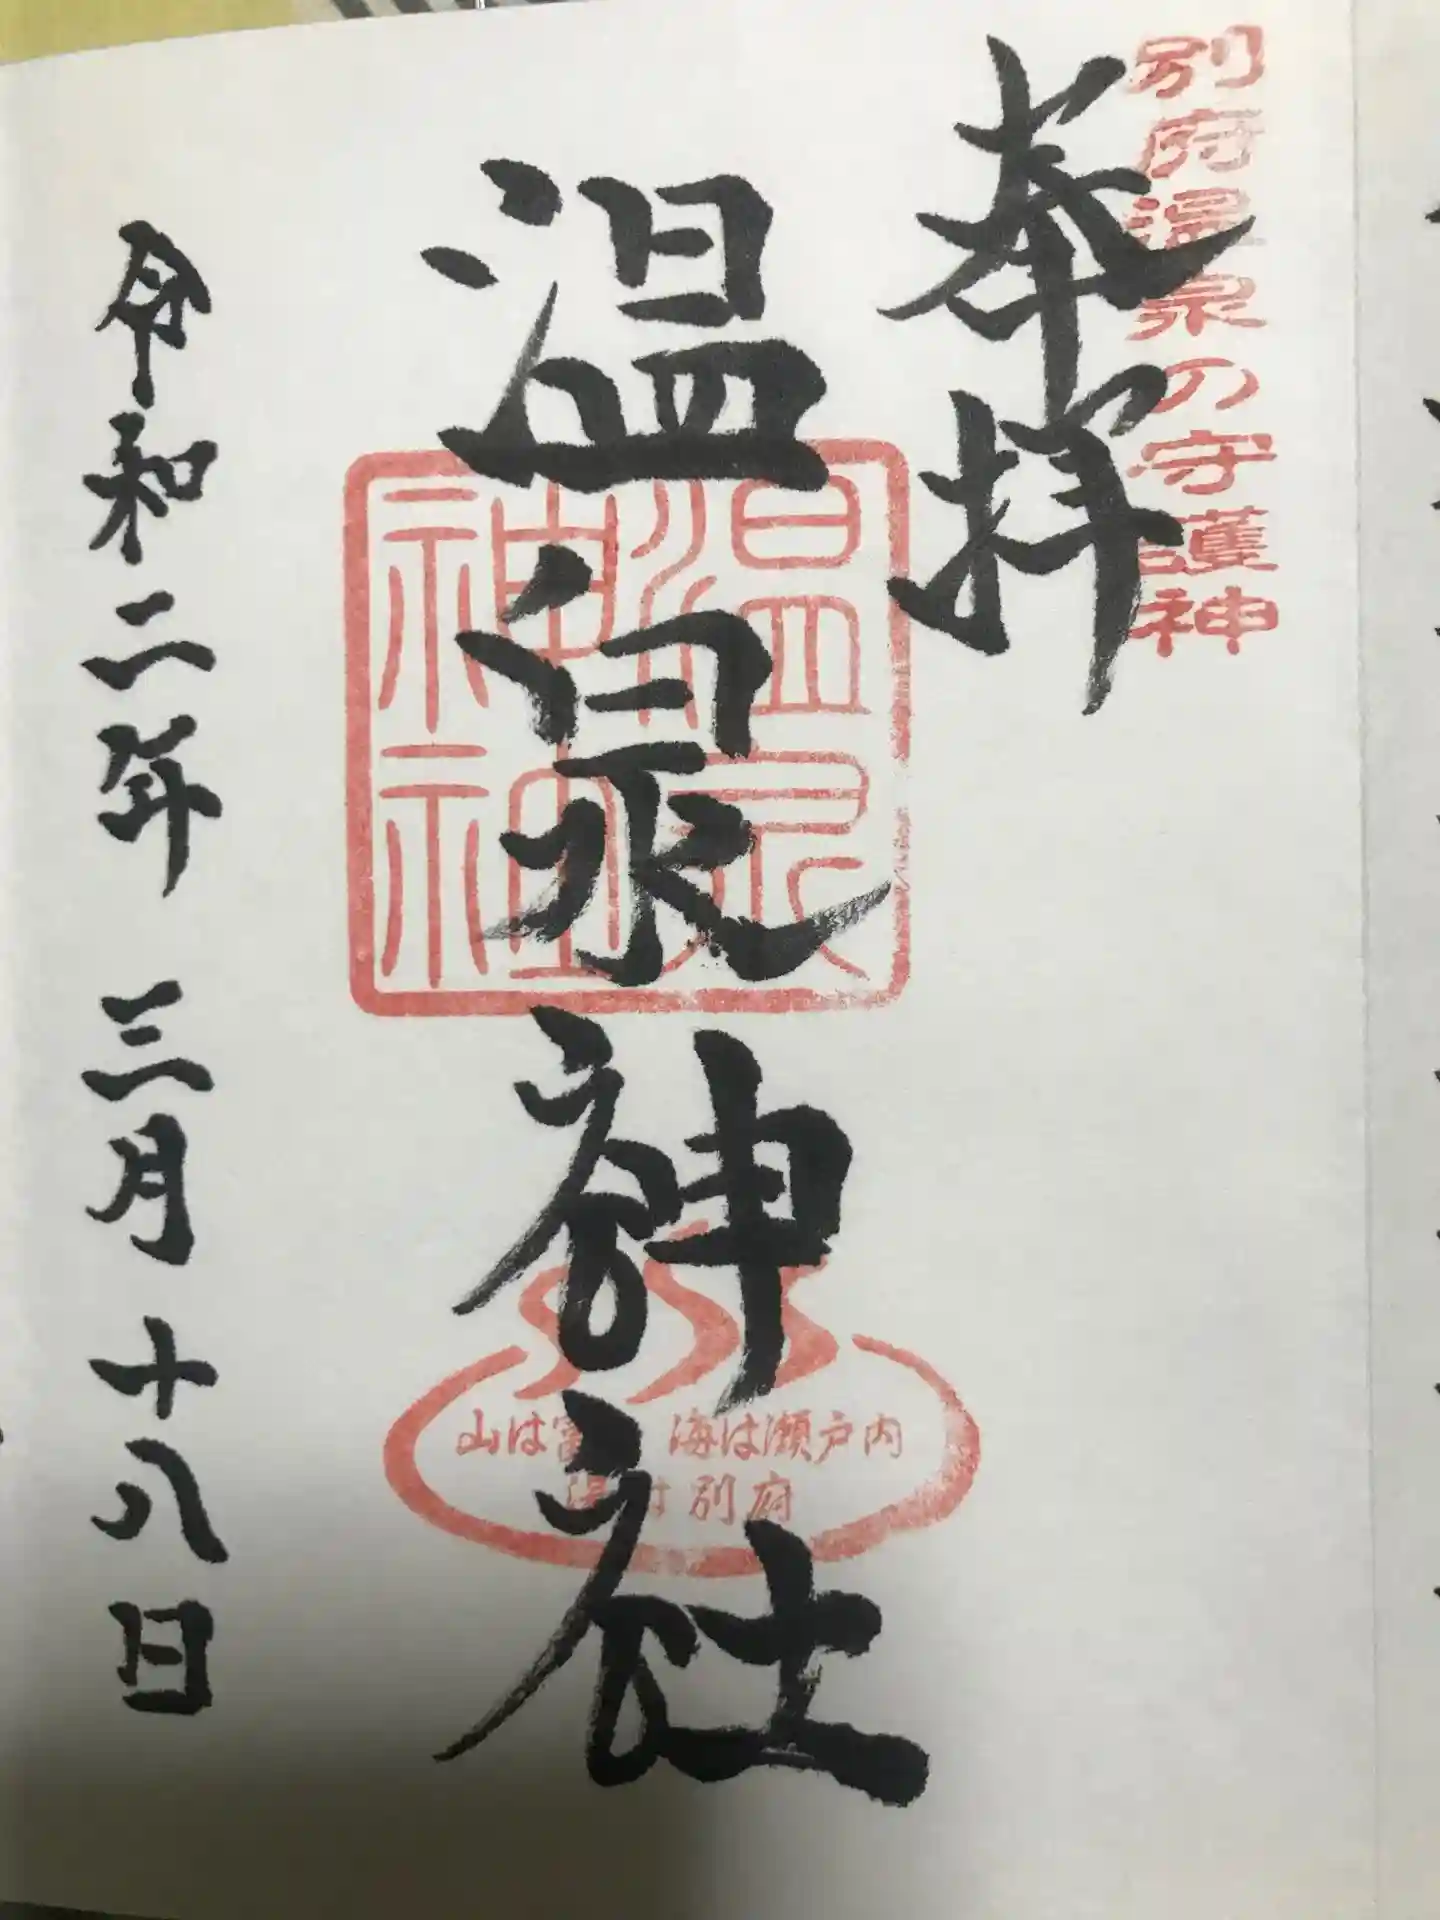 別府温泉の守護神
奉拝
温泉神社
温泉
神社
山は富 海は瀬戸内
は別府
令和二年 三月十八日